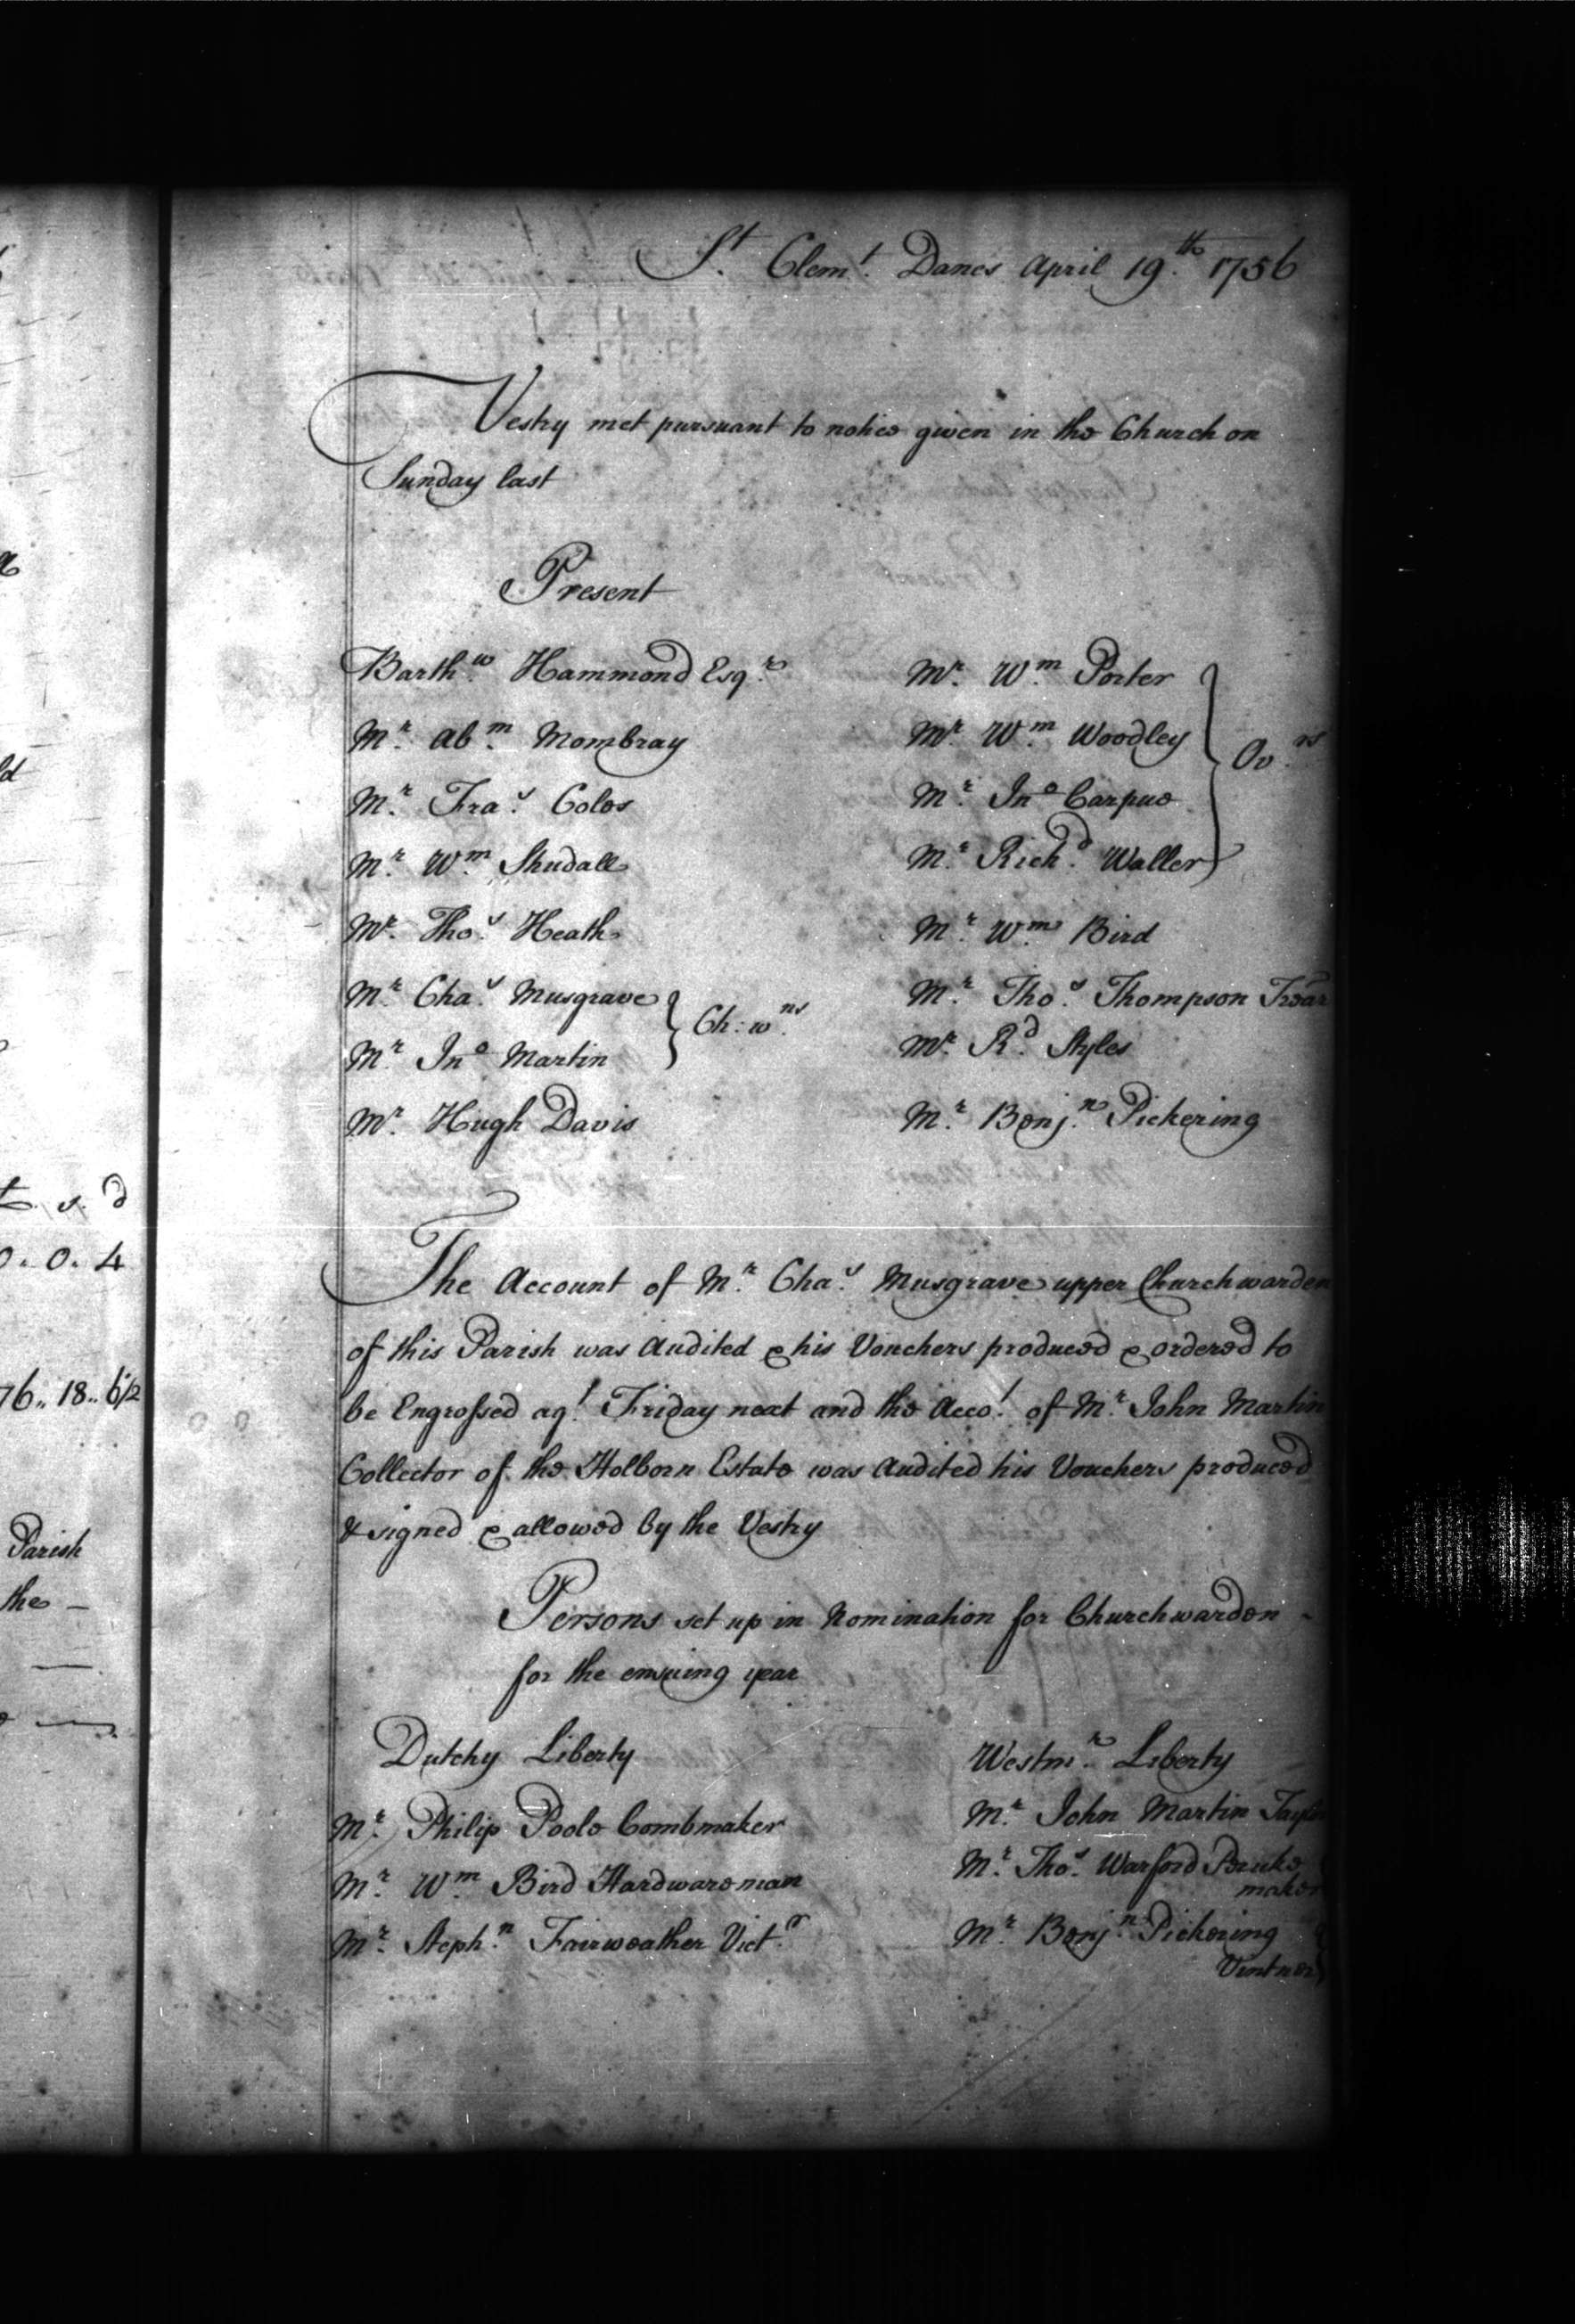 St. Clemt. Danes April 19.th 1756
Vestry met pursuant to notice given in the Church on
Sunday last
Present
Barth.w Hammond Esq.r
Mr. Ab.m Mombray
Mr. Fra.s Coles
Mr. Wm. Shudall
Mr. Tho.s Heath
Mr. Cha.s Musgrave
Mr. Jno. Martin
Ch: w.ns
Mr. Hugh Davis
Mr. Wm. Porter
Mr. Wm. Woodley
Mr. Jno. Carpue
Mr. Rich.d Waller
Ov.rs
Mr. Wm. Bird
Mr. Tho.s Thompson
Mr. R.d Styles
Mr. Benj.n Pickering
The Account of Mr. Cha.s Musgrave upper Churchwarden
of this Parish was Audited & his Vouchers produced & ordered to
be Engrossed agt. Friday next and the Acco.t of Mr. John Martin
Collector of the Holborn Estate was Audited his Vouchers produced
& signed & allowed by the Vestry
Persons set up in Nomination for Churchwarden -
for the ensuing year
Dutchy Liberty
Mr. Philip Poole Combmaker
Mr. Wm. Bird Hardwareman
Mr. Steph.n Fairweather Vict.r
Westm.r Liberty
Mr. John Martin Taylor
Mr. Tho.s Warford Peruke
maker
Mr. Benj.n Pickering
Vintner
s. d
0. 4
76,, 18,, 6 1/2
Parish
the -